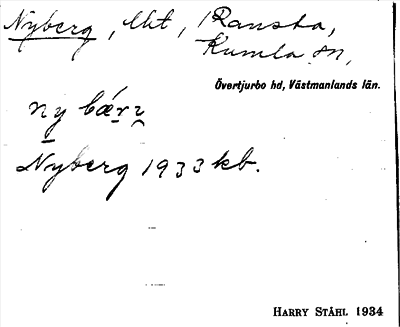 Nyberg, lht, Ransta,
Kumla sn,
Övertjurbo hd, Västmanlands län.
ny bærɣ
Nyberg 1933 kb.
HARRY STÅHL 1934